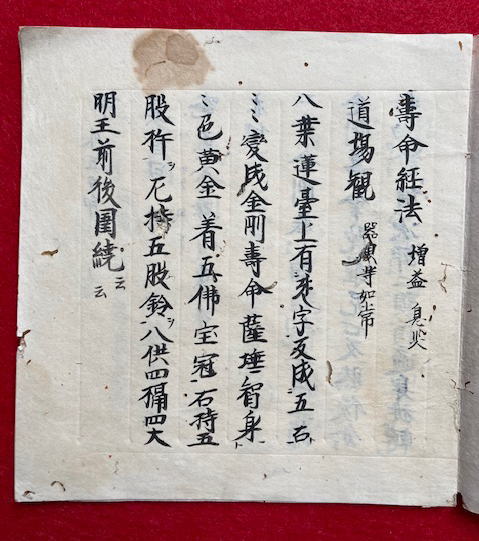 壽命経法 増益 息災
道場観 器界等如常
八葉蓮臺上有字反成五古
ミミ變成金剛壽命薩埵智身
ミ色黄金着五佛宝冠右持五
股杵シ左持五股鈴シ八供四摂四大
明王前後圍繞云云